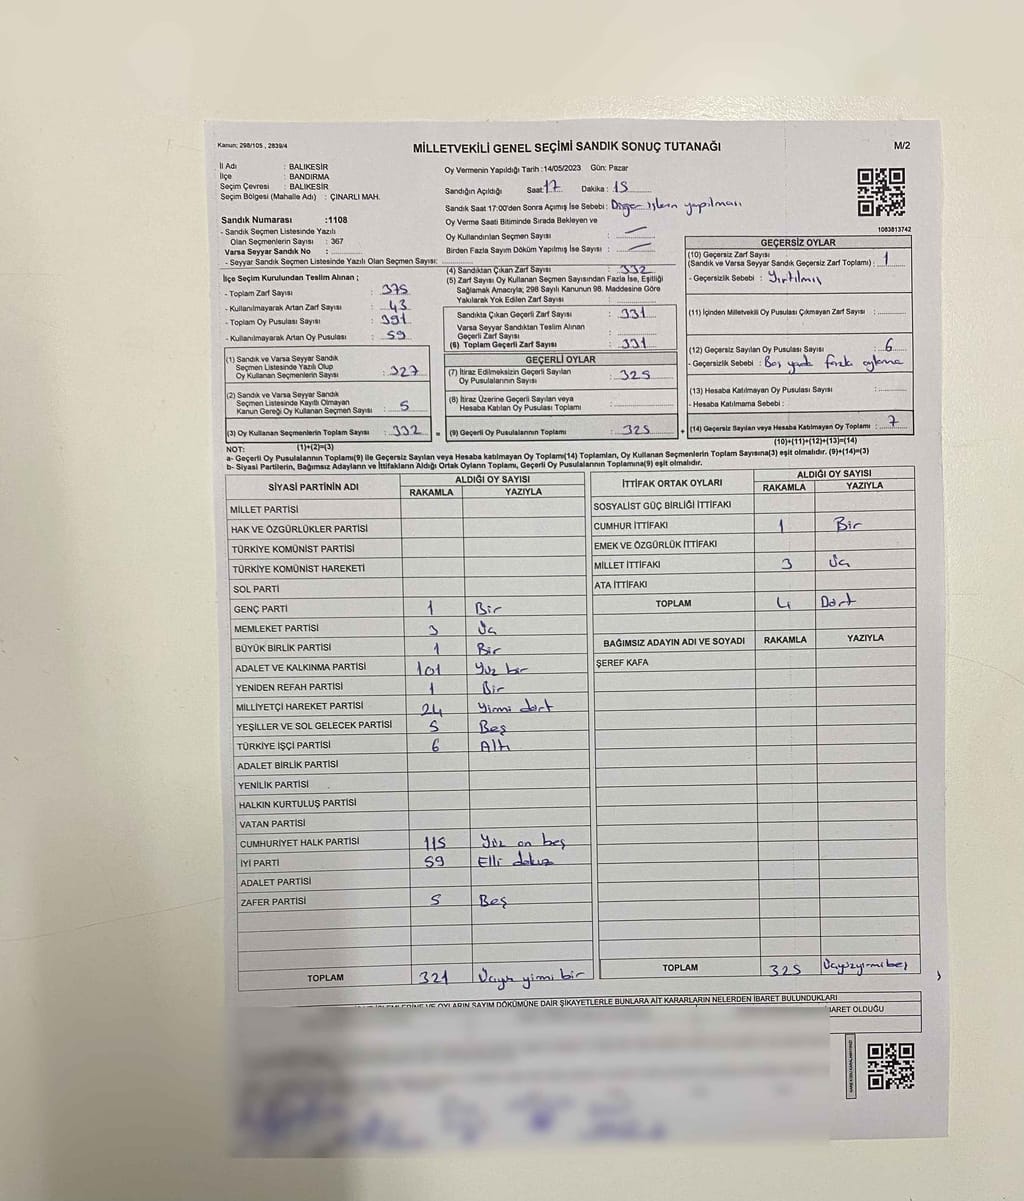 Kanun; 298/105 , 2839/4
MİLLETVEKİLİ GENEL SEÇİMİ SANDIK SONUÇ TUTANAĞI
M/2
İl Adı : BALIKESİR
İlçe : BANDIRMA
Seçim Çevresi : BALIKESİR
Seçim Bölgesi (Mahalle Adı) : ÇINARLI MAH.
Sandık Numarası :1108
- Sandık Seçmen Listesinde Yazılı
Olan Seçmenlerin Sayısı : 367
Varsa Seyyar Sandık No :
- Seyyar Sandık Seçmen Listesinde Yazılı Olan Seçmen Sayısı:
Oy Vermenin Yapıldığı Tarih :14/05/2023 Gün: Pazar
Sandığın Açıldığı Saat: 17 Dakika : 15
Sandık Saat 17:00'den Sonra Açımış İse Sebebi : Diğer işlerin yapılması
Oy Verme Saati Bitiminde Sırada Bekleyen ve
Oy Kullandırılan Seçmen Sayısı : —
Birden Fazla Sayım Döküm Yapılmış İse Sayısı : —
1083813742
İlçe Seçim Kurulundan Teslim Alınan ;
- Toplam Zarf Sayısı : 375
- Kullanılmayarak Artan Zarf Sayısı : 43
- Toplam Oy Pusulası Sayısı : 391
- Kullanılmayarak Artan Oy Pusulası : 59
(1) Sandık ve Varsa Seyyar Sandık
Seçmen Listesinde Yazılı Olup
Oy Kullanan Seçmenlerin Sayısı : 327
(2) Sandık ve Varsa Seyyar Sandık
Seçmen Listesinde Kayıtlı Olmayan
Kanun Gereği Oy Kullanan Seçmen Sayısı : 5
(3) Oy Kullanan Seçmenlerin Toplam Sayısı : 332 =
(4) Sandıktan Çıkan Zarf Sayısı : 332
(5) Zarf Sayısı Oy Kullanan Seçmen Sayısından Fazla İse, Eşitliği
Sağlamak Amacıyla; 298 Sayılı Kanunun 98. Maddesine Göre
Yakılarak Yok Edilen Zarf Sayısı :
Sandıkta Çıkan Geçerli Zarf Sayısı : 331
Varsa Seyyar Sandıktan Teslim Alınan
Geçerli Zarf Sayısı :
(6) Toplam Geçerli Zarf Sayısı : 331
GEÇERLİ OYLAR
(7) İtiraz Edilmeksizin Geçerli Sayılan
Oy Pusulalarının Sayısı : 325
(8) İtiraz Üzerine Geçerli Sayılan veya
Hesaba Katılan Oy Pusulası Toplamı :
(9) Geçerli Oy Pusulalarının Toplamı : 325 +
GEÇERSİZ OYLAR
(10) Geçersiz Zarf Sayısı
(Sandık ve Varsa Seyyar Sandık Geçersiz Zarf Toplamı) : 1
- Geçersizlik Sebebi : Yırtılmış
(11) İçinden Milletvekili Oy Pusulası Çıkmayan Zarf Sayısı :
(12) Geçersiz Sayılan Oy Pusulası Sayısı : 6
- Geçersizlik Sebebi : Boş yada fazla oylama
(13) Hesaba Katılmayan Oy Pusulası Sayısı :
- Hesaba Katılmama Sebebi :
(14) Geçersiz Sayılan veya Hesaba Katılmayan Oy Toplamı : 7
NOT: (1)+(2)=(3)
(10)+(11)+(12)+(13)=(14)
a- Geçerli Oy Pusulalarının Toplamı(9) ile Geçersiz Sayılan veya Hesaba katılmayan Oy Toplamı(14) Toplamları, Oy Kullanan Seçmenlerin Toplam Sayısına(3) eşit olmalıdır. (9)+(14)=(3)
b- Siyasi Partilerin, Bağımsız Adayların ve İttifakların Aldığı Ortak Oyların Toplamı, Geçerli Oy Pusulalarının Toplamına(9) eşit olmalıdır.
SİYASİ PARTİNİN ADI ALDIĞI OY SAYISI
RAKAMLA YAZIYLA
MİLLET PARTİSİ
HAK VE ÖZGÜRLÜKLER PARTİSİ
TÜRKİYE KOMÜNİST PARTİSİ
TÜRKİYE KOMÜNİST HAREKETİ
SOL PARTİ
GENÇ PARTİ 1 Bir
MEMLEKET PARTİSİ 3 Üç
BÜYÜK BİRLİK PARTİSİ 1 Bir
ADALET VE KALKINMA PARTİSİ 101 Yüz bir
YENİDEN REFAH PARTİSİ 1 Bir
MİLLİYETÇİ HAREKET PARTİSİ 24 Yirmi dört
YEŞİLLER VE SOL GELECEK PARTİSİ 5 Beş
TÜRKİYE İŞÇİ PARTİSİ 6 Altı
ADALET BİRLİK PARTİSİ
YENİLİK PARTİSİ
HALKIN KURTULUŞ PARTİSİ
VATAN PARTİSİ
CUMHURİYET HALK PARTİSİ 115 Yüz on beş
İYİ PARTİ 59 Elli dokuz
ADALET PARTİSİ
ZAFER PARTİSİ 5 Beş
TOPLAM 321 Üçyüz yirmi bir
İTTİFAK ORTAK OYLARI ALDIĞI OY SAYISI
RAKAMLA YAZIYLA
SOSYALİST GÜÇ BİRLİĞİ İTTİFAKI
CUMHUR İTTİFAKI 1 Bir
EMEK VE ÖZGÜRLÜK İTTİFAKI
MİLLET İTTİFAKI 3 Üç
ATA İTTİFAKI
TOPLAM 4 Dört
BAĞIMSIZ ADAYIN ADI VE SOYADI RAKAMLA YAZIYLA
ŞEREF KAFA
TOPLAM 325 Üçyüzyirmibeş
OYLARIN SAYIM DÖKÜMÜNE DAİR ŞİKAYETLERLE BUNLARA AİT KARARLARIN NELERDEN İBARET BULUNDUKLARI
İBARET OLDUĞU